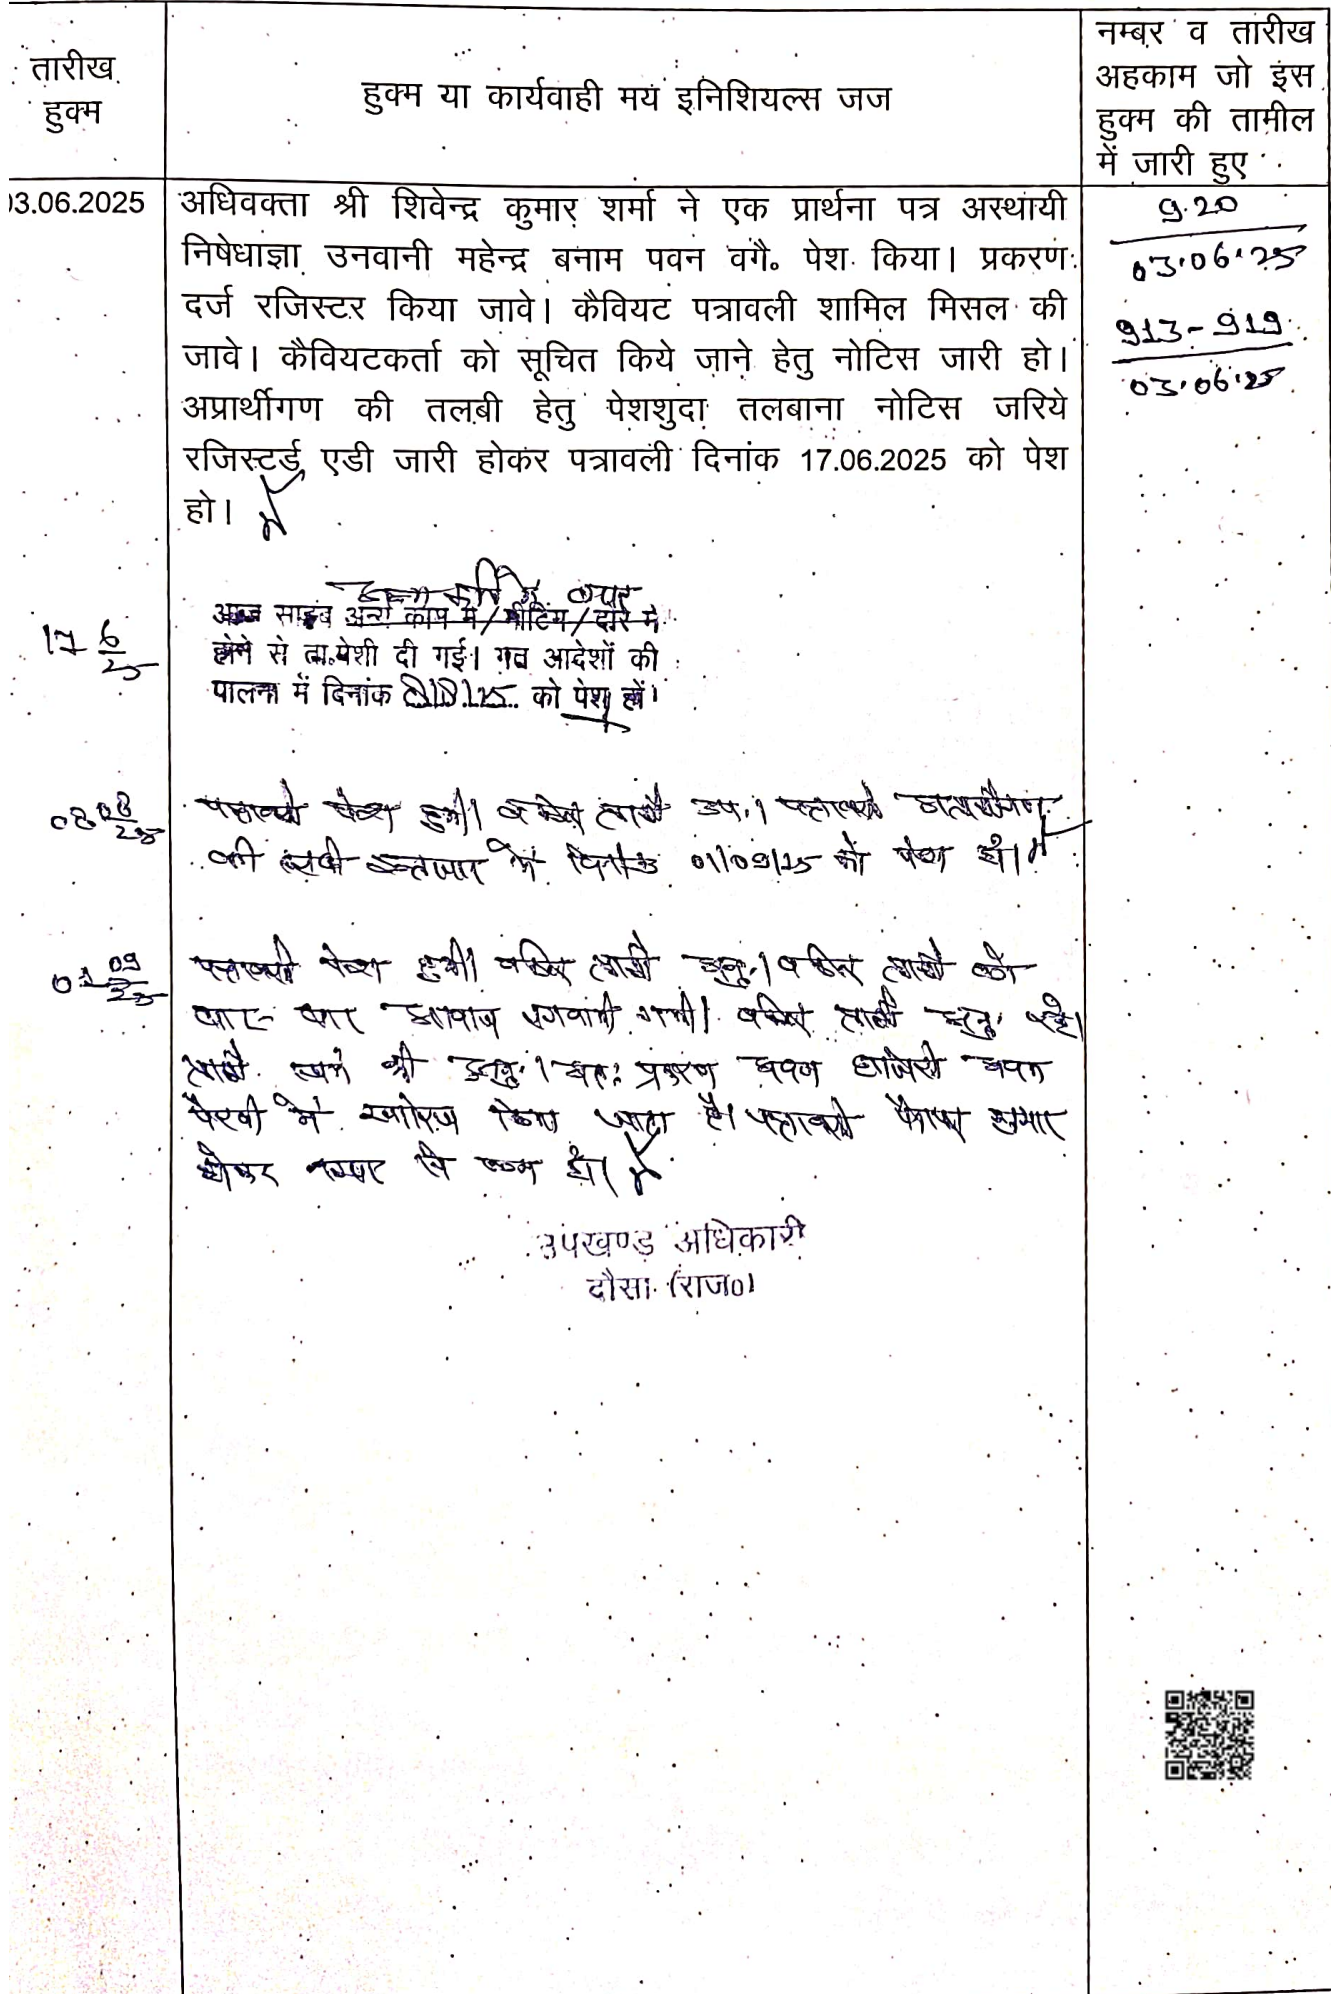 तारीख
हुक्म
हुक्म या कार्यवाही मय इनिशियल्स जज
नम्बर व तारीख
अहकाम जो इस
हुक्म की तामील
में जारी हुए
03.06.2025
अधिवक्ता श्री शिवेन्द्र कुमार शर्मा ने एक प्रार्थना पत्र अस्थायी
निषेधाज्ञा उनवानी महेन्द्र बनाम पवन वगै० पेश किया। प्रकरण
दर्ज रजिस्टर किया जावे। कैवियट पत्रावली शामिल मिसल की
जावे। कैवियटकर्ता को सूचित किये जाने हेतु नोटिस जारी हो।
अप्रार्थीगण की तलबी हेतु पेशशुदा तलबाना नोटिस जरिये
रजिस्टर्ड एडी जारी होकर पत्रावली दिनांक 17.06.2025 को पेश
हो।
9.20
03.06.25
913-919
03.06.25
17 6/25
आज साहब अन्य काम में/मीटिंग/दौरे में
होने से ता.पेशी दी गई। गत आदेशों की
पालना में दिनांक को पेश हों।
08 08/25
पत्रावली पेश हुयी। वकील प्रार्थी उप.। पत्रावली अप्रार्थीगण
की तलबी इन्तजार में दिनांक 01/09/25 को पेश हो।
01 09/25
पत्रावली पेश हुयी। वकील प्रार्थी अनु.। वकील प्रार्थी को
बार-बार आवाज लगवायी गयी। वकील प्रार्थी अनु. रहे।
प्रार्थी स्वयं भी अनु.। अतः प्रकरण अदम हाजिरी अदम
पैरवी में खारिज किया जाता है। पत्रावली फैसल शुमार
होकर नम्बर से कम हो।
उपखण्ड अधिकारी
दौसा (राज०)